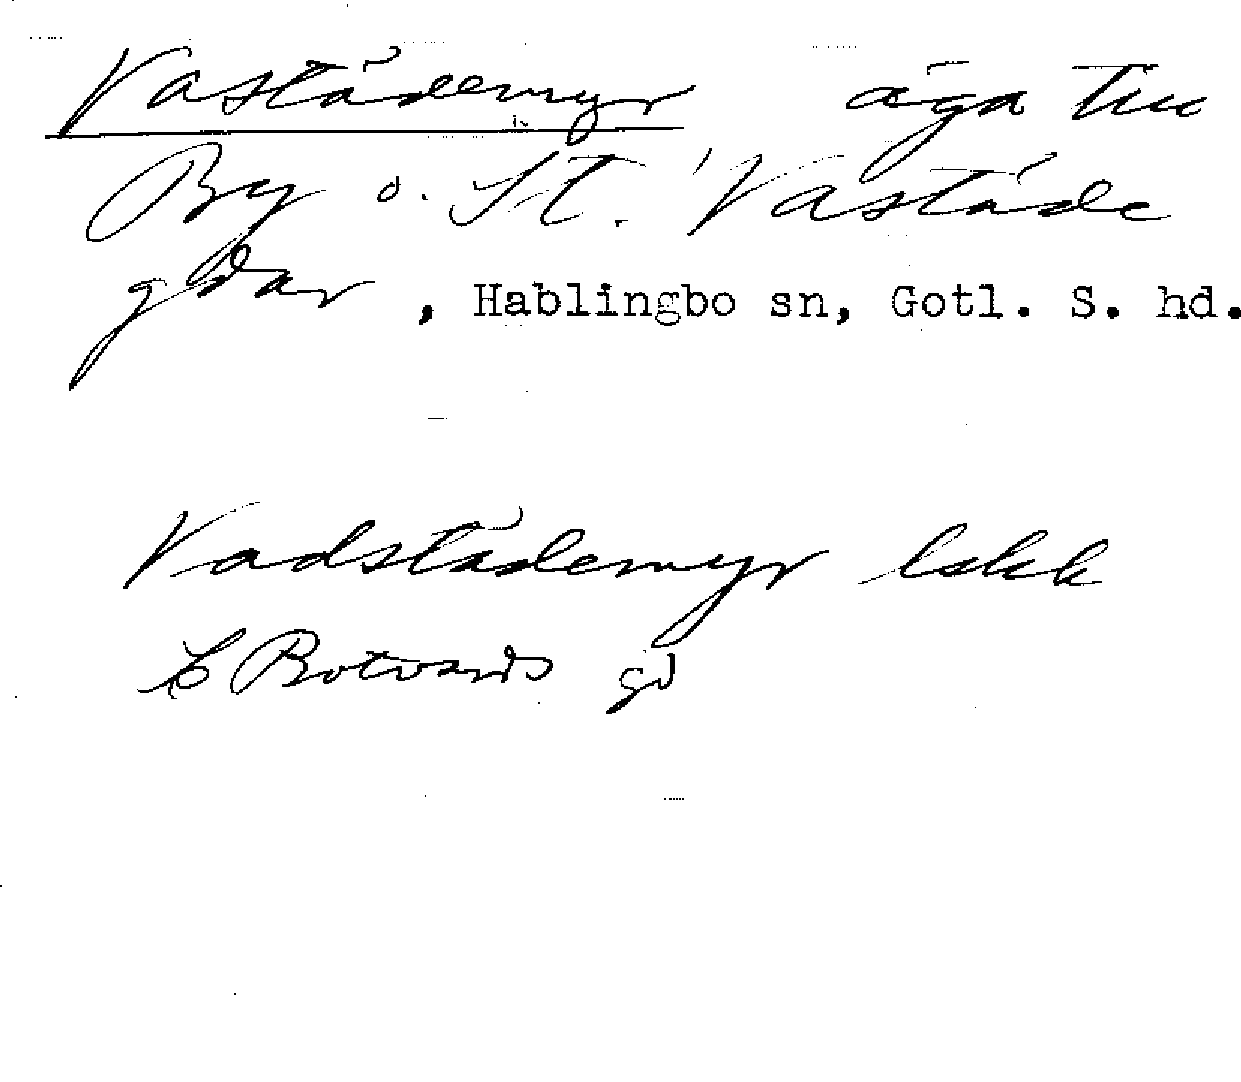 Vastädemyr äga till
By o. St. Vastäde
gdar, Hablingbo sn, Gotl. S. hd.
Vadstädemyr lskk
Botvards gd